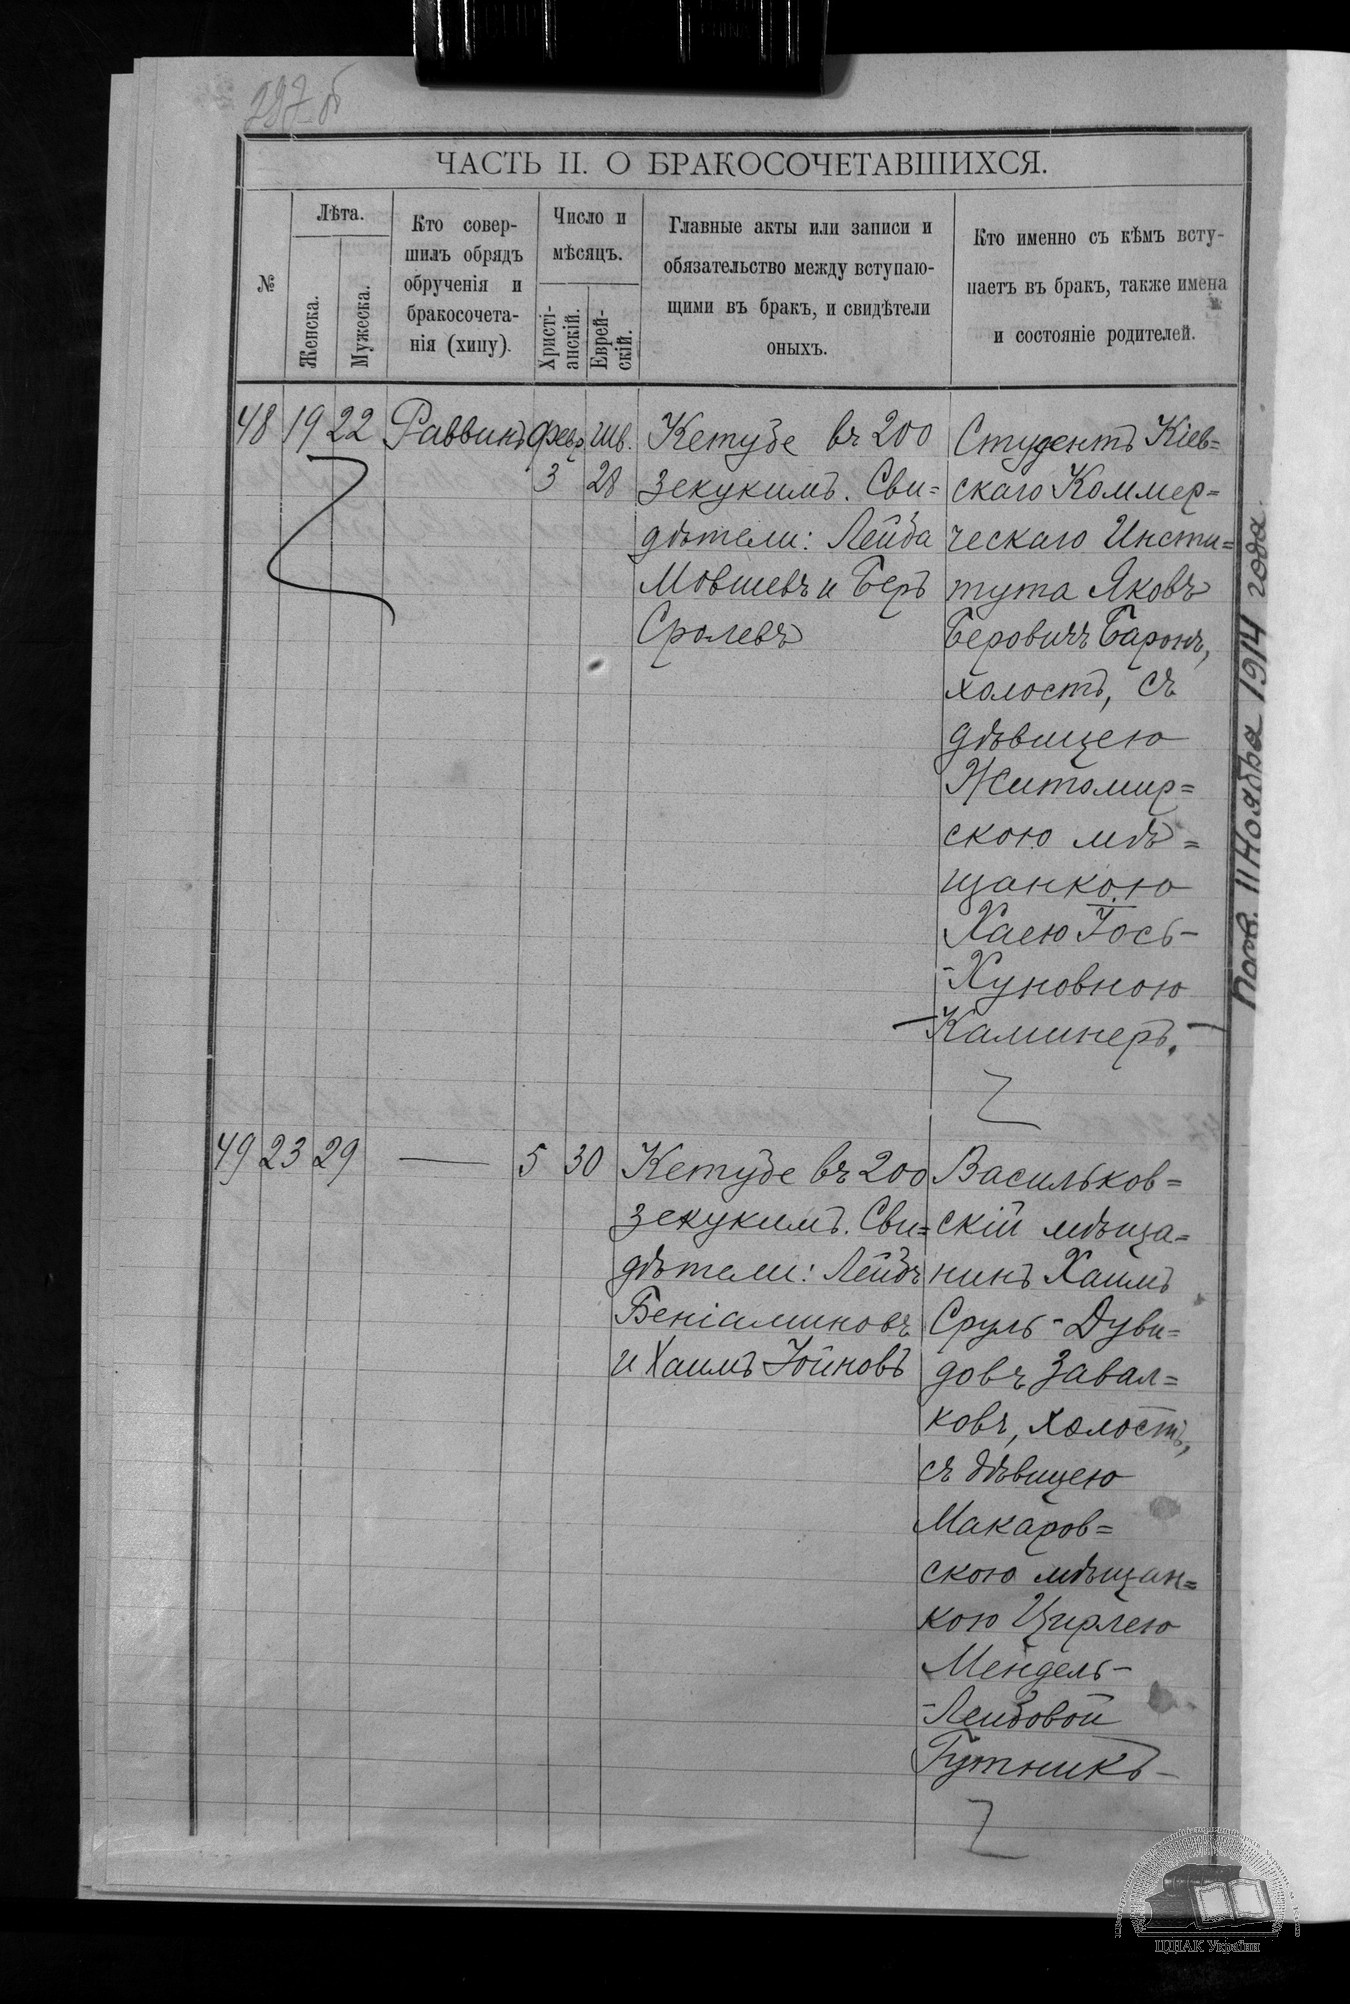 287 б
ЧАСТЬ II. О БРАКОСОЧЕТАВШИХСЯ.
№
Лѣта.
Женска.
Мужеска.
Кто совер-
шилъ обрядъ
обрученія и
бракосочета-
нія (хипу).
Число и
мѣсяцъ.
Христі-
анскій.
Еврей-
скій.
Главные акты или записи и
обязательство между вступаю-
щими въ бракъ, и свидѣтели
оныхъ.
Кто именно съ кѣмъ всту-
паетъ въ бракъ, также имена
и состояніе родителей.
48 19 22 Раввинъ Февр. 3 Шв. 28
Кетубе въ 200
зекукимъ. Сви=
дѣтели: Лейба
Мовшевъ и Беръ
Сролевъ
Студентъ Кіев=
скаго Коммер=
ческаго Инсти=
тута Яковъ
Беровичъ Баронъ,
холостъ, съ
дѣвицею
Житомир=
скою мѣ=
щанкою
Хаею Іось-
-Хуновною
Каминеръ.
49 23 29 — 5 30
Кетубе въ 200
зекукимъ. Сви=
дѣтели: Лейбъ
Беніаминовъ
и Хаимъ Іойновъ
Васильков=
скій мѣща=
нинъ Хаимъ
Сруль-Дуви=
довъ Завал=
ковъ, холостъ,
съ дѣвицею
Макаров=
скою мѣщан=
кою Цирлею
Мендель-
-Лейбовой
Гутникъ
11 Ноября 1914 года.
ЦДІАК України